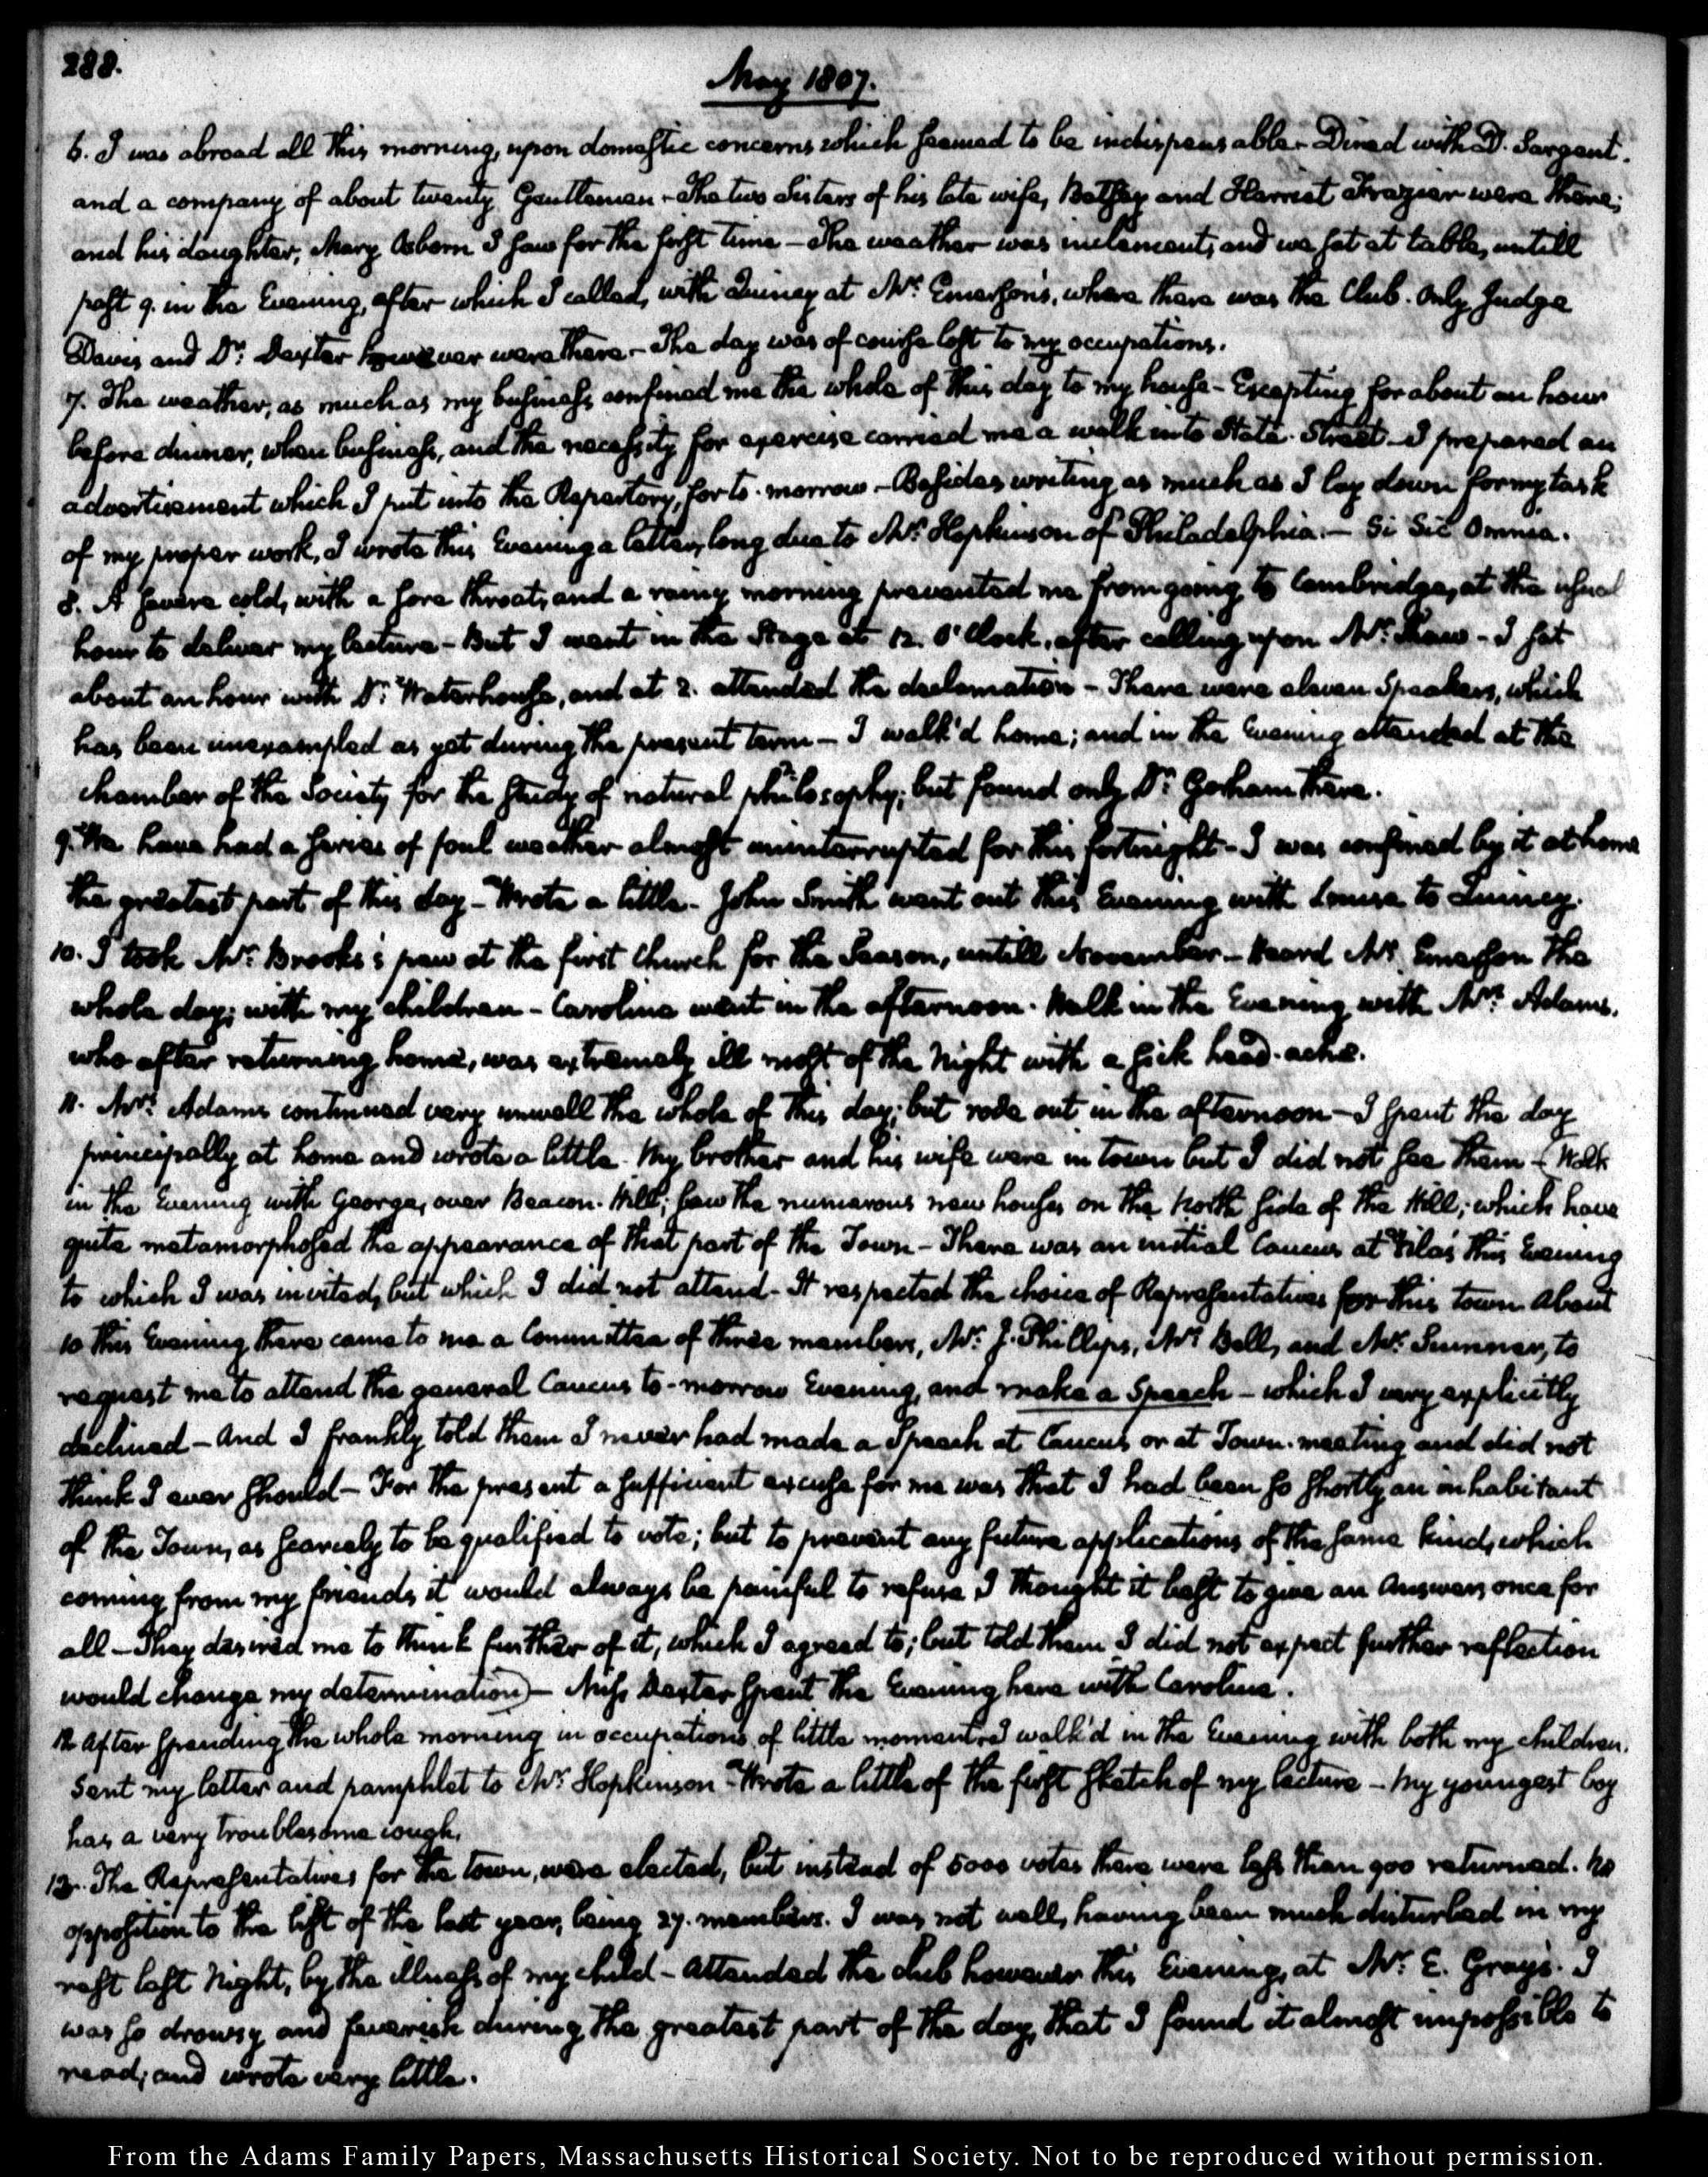 288.
May 1807.
6. I was abroad all this morning, upon domestic concerns which seemed to be indispensable. Dined with D. Sargent.
and a company of about twenty Gentlemen - The two Sisters of his late wife, Betsey and Harriet Frazier were there;
and his daughter, Mary Osborn I saw for the first time - The weather was inclement, and we sat at table, untill
past 9. in the Evening, after which I called, with Quincy at Mr. Emerson's, where there was the Club. Only Judge
Davis and Dr. Dexter however were there - The day was of course lost to my occupations.
7. The weather, as much as my business confined me the whole of this day to my house - Excepting for about an hour
before dinner, when business, and the necessity for exercise carried me a walk into State-Street - I prepared an
advertisement which I put into the Repertory, for to-morrow - Besides writing as much as I lay down for my task
of my proper work, I wrote this Evening a letter, long due to Mr. Hopkinson of Philadelphia. - Si Sic Omnia.
8. A severe cold, with a sore throat, and a rainy morning prevented me from going to Cambridge, at the usual
hour to deliver my lecture - But I went in the Stage at 12. O'Clock, after calling upon Mr. Shaw - I sat
about an hour with Dr. Waterhouse, and at 2. attended the declamation - There were eleven Speakers, which
has been unexampled as yet during the present term - I walk'd home; and in the Evening attended at the
chamber of the Society for the study of natural philosophy; but found only Dr. Gorham there.
9. We have had a series of foul weather almost uninterrupted for this fortnight - I was confined by it at home
the greatest part of this day - Wrote a little - John Smith went out this Evening with Louisa to Quincy.
10. I took Mr. Brooks's pew at the first Church for the Season, untill November - Heard Mr. Emerson the
whole day; with my children - Caroline went in the afternoon. Walk in the Evening with Mrs. Adams,
who after returning home, was extremely ill most of the Night with a sick head-ache.
11. Mrs. Adams continued very unwell the whole of this day; but rode out in the afternoon - I spent the day
principally at home and wrote a little. My brother and his wife were in town but I did not see them - (Walk
in the Evening with George, over Beacon-Hill; saw the numerous new houses on the North side of the Hill; which have
quite metamorphosed the appearance of that part of the Town - There was an initial Caucus at Vila's this Evening
to which I was invited, but which I did not attend - It respected the choice of Representatives for this town. About
10 this Evening there came to me a Committee of three members, Mr. J. Phillips, Mr. Bell, and Mr. Sumner, to
request me to attend the general Caucus to-morrow Evening, and make a Speech - which I very explicitly
declined - And I frankly told them I never had made a Speech at Caucus or at Town-meeting and did not
think I ever should - For the present a sufficient excuse for me was that I had been so shortly an inhabitant
of the Town, as scarcely to be qualified to vote; but to prevent any future applications of the same kind, which
coming from my friends it would always be painful to refuse, I thought it best to give an Answer, once for
all - They desired me to think further of it, which I agreed to; but told them I did not expect further reflection
would change my determination) - Miss Dexter spent the Evening here with Caroline.
12. After spending the whole morning in occupations of little moment, I walk'd in the Evening with both my children.
Sent my letter and pamphlet to Mr. Hopkinson - Wrote a little of the first sketch of my lecture - My youngest boy
has a very troublesome cough.
13. The Representatives for the town, were elected, but instead of 5000 votes there were less than 900 returned. No
opposition to the list of the last year, being 27. members. I was not well, having been much disturbed in my
rest last Night, by the illness of my child - Attended the club however this Evening, at Mr. E. Gray's. I
was so drowsy and feverish during the greatest part of the day, that I found it almost impossible to
read; and wrote very little.
From the Adams Family Papers, Massachusetts Historical Society. Not to be reproduced without permission.